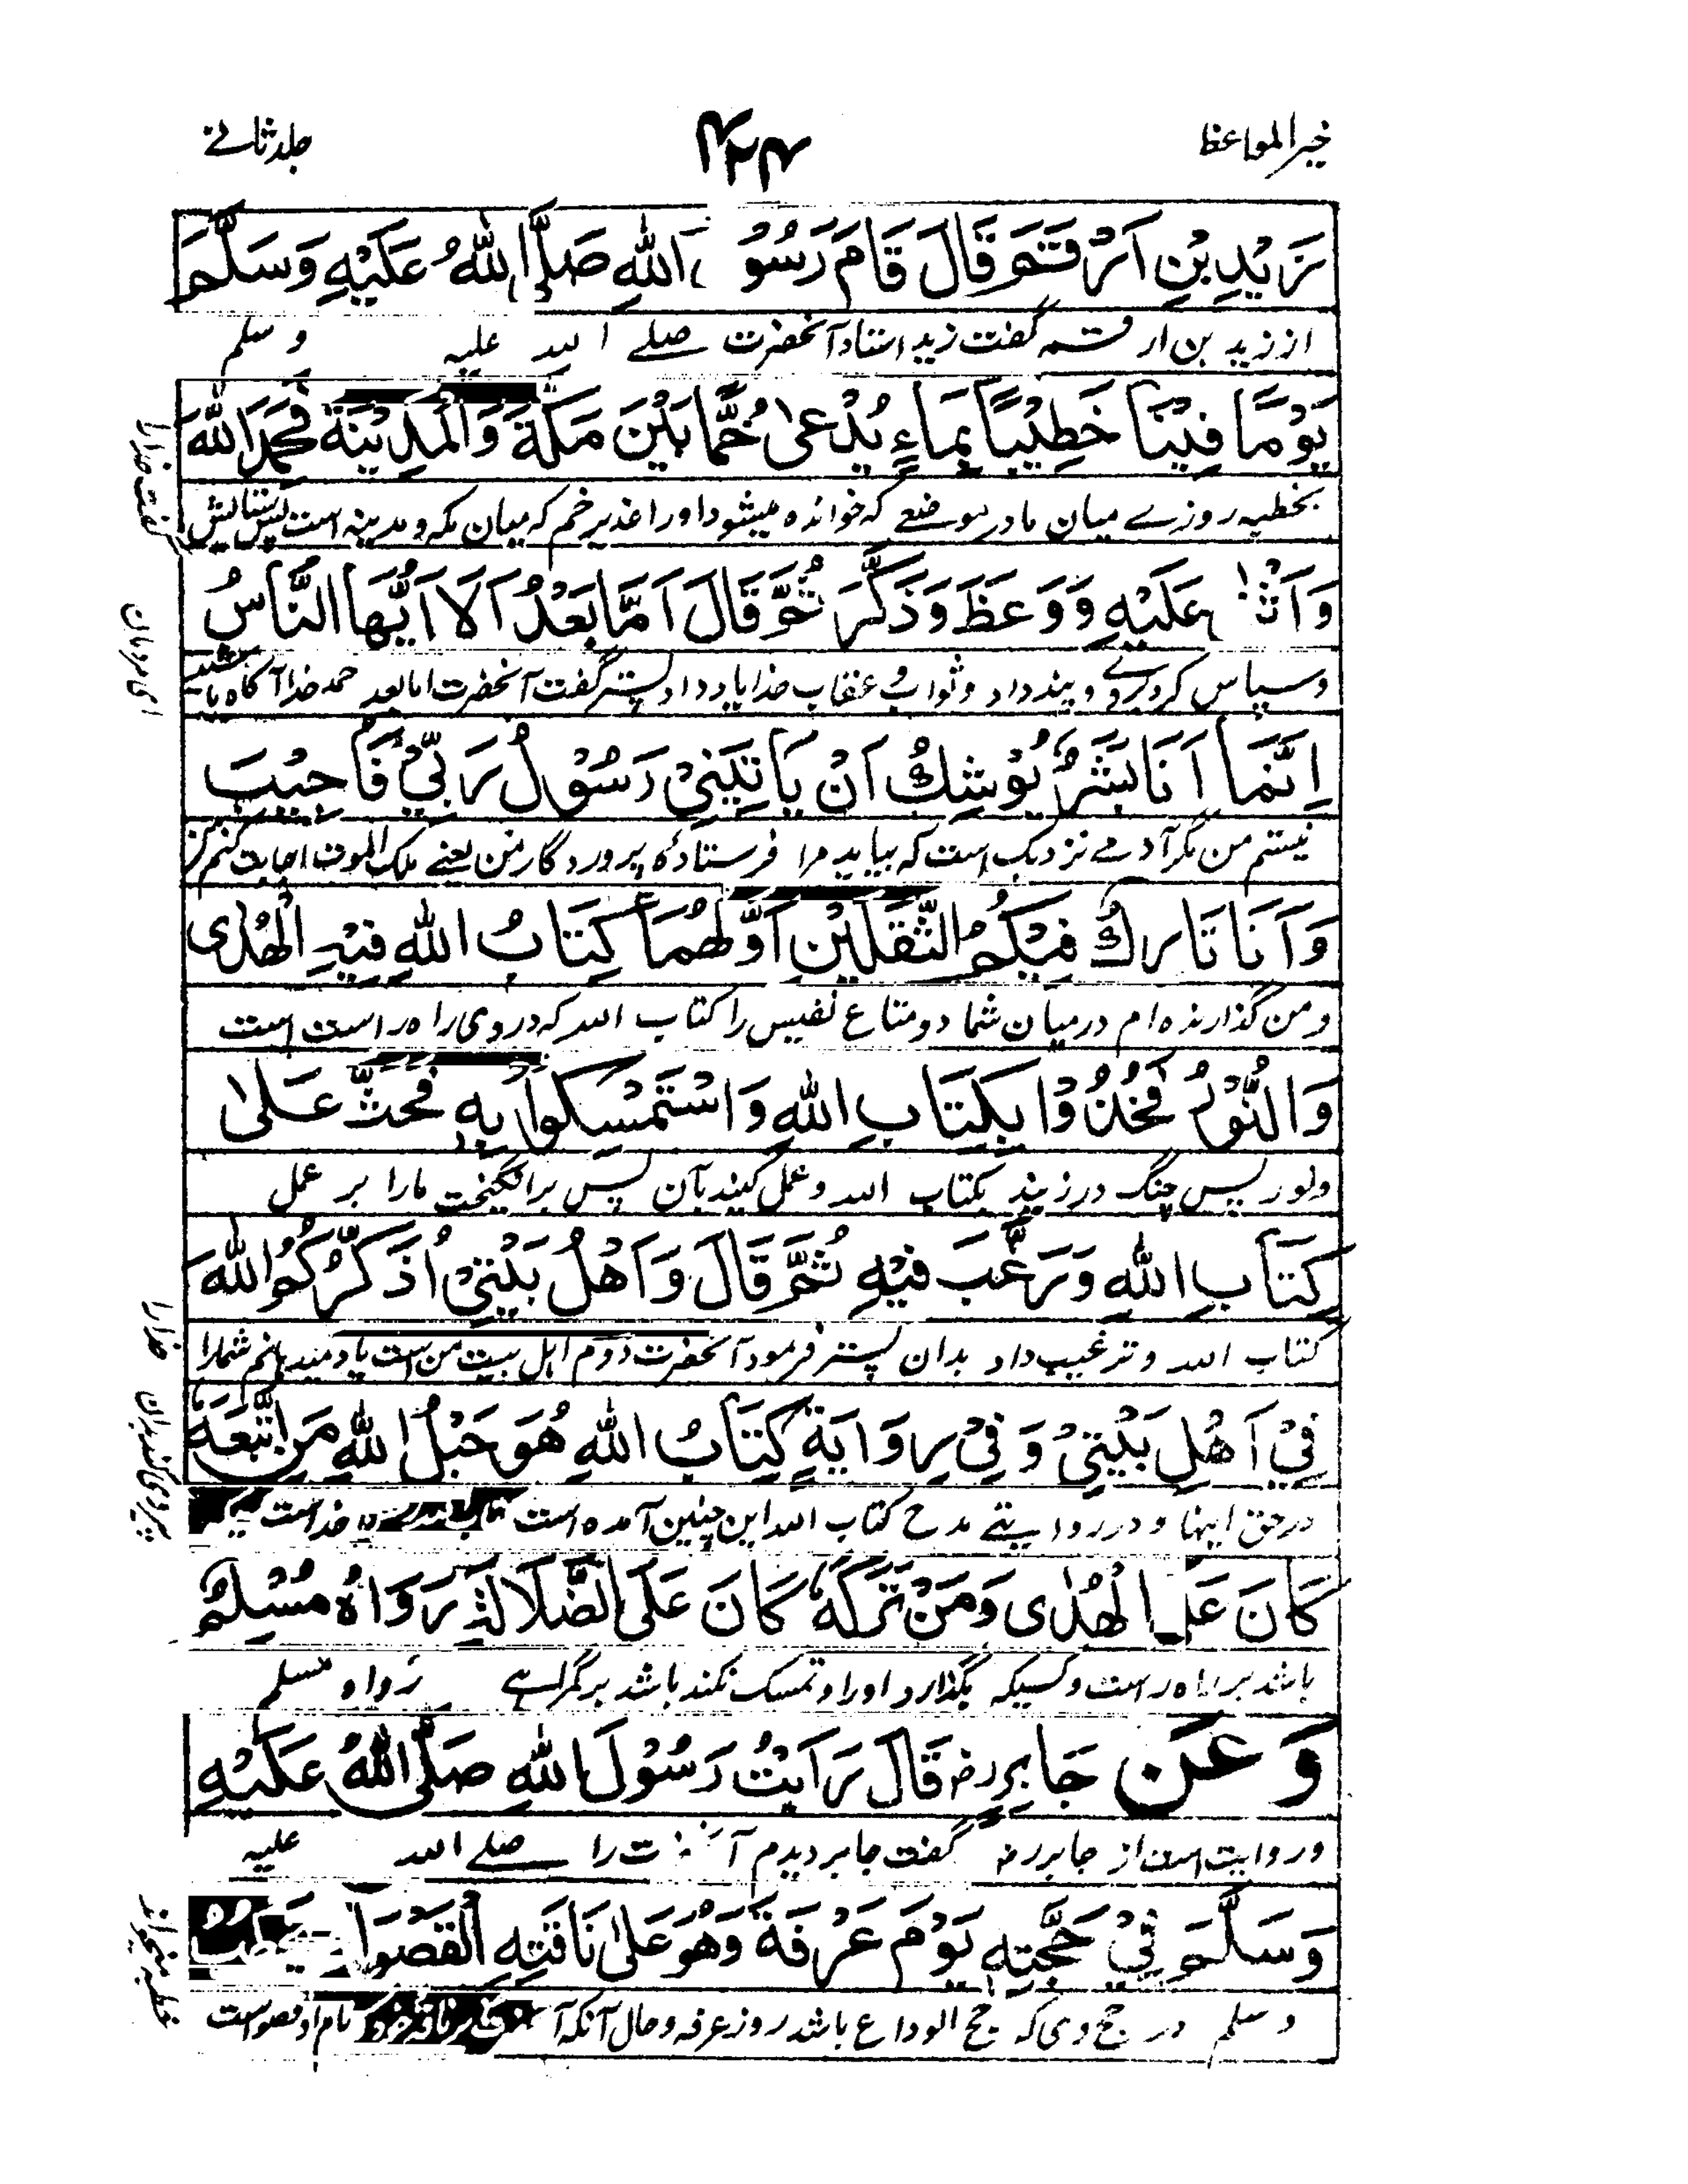 خیر المواعظ
۴۲۴
جلد ثانے
زَیْدِ بْنِ اَرْقَمَ قَالَ قَامَ رَسُوْ اللّٰهِ صَلَّی اللّٰهُ عَلَیْهِ وَسَلَّمَ
از زید بن ارقم گفت زید استاد آنحضرت صلے الله علیه وسلم
یَوْمًا فِیْنَا خَطِیْبًا بِمَاءٍ یُدْعٰی خُمًّا بَیْنَ مَکَّةَ وَالْمَدِیْنَةِ فَحَمِدَ اللّٰهَ
بخطبه روزے میان ما در موضعے که خوانده میشود اورا غدیر خم که میان مکه و مدینه است پس ستایش
گفت خدا را
وَاَثْنٰی عَلَیْهِ وَوَعَظَ وَذَکَّرَ ثُمَّ قَالَ اَمَّا بَعْدُ اَلَا اَیُّهَا النَّاسُ
وسپاس کرد بروے و پند داد و ثواب و عقاب خدا یاد داد پستر گفت آنحضرت اما بعد حمد خدا آگاه باشید
ای مردمان
اِنَّمَا اَنَا بَشَرٌ یُوْشِكُ اَنْ یَاْتِیَنِیْ رَسُوْلُ رَبِّیْ فَاُجِیْبَ
نیستم من مگر آدمے نزدیک است که بیاید مرا فرستادهٔ پروردگار من یعنے ملک الموت اجابت کنم
وَاَنَا تَارِكٌ فِیْکُمُ الثَّقَلَیْنِ اَوَّلُهُمَا کِتَابُ اللّٰهِ فِیْهِ الْهُدٰی
ومن گذارنده ام درمیان شما دو متاع نفیس را کتاب الله که دروی راه راست است
وَالنُّوْرُ فَخُذُوْا بِکِتَابِ اللّٰهِ وَاسْتَمْسِکُوْا بِهٖ فَحَثَّ عَلٰی
ونور پس چنگ در زنید بکتاب الله وعمل کنید بآن پس برانگیخت مارا بر عمل
کِتَابِ اللّٰهِ وَرَغَّبَ فِیْهِ ثُمَّ قَالَ وَاَهْلُ بَیْتِیْ اُذَکِّرُکُمُ اللّٰهَ
کتاب الله و ترغیب داد بدان پستر فرمود آنحضرت دوم اہل بیت من است یاد میدہانم شمارا
خدا را
فِیْ اَهْلِ بَیْتِیْ وَفِیْ رِوَایَةٍ کِتَابُ اللّٰهِ هُوَ حَبْلُ اللّٰهِ مَنِ اتَّبَعَهٗ
درحق اینها و در روایتے مدح کتاب الله این چنین آمده است خداست
پیروی کند بدان
کَانَ عَلَی الْهُدٰی وَمَنْ تَرَکَهٗ کَانَ عَلَی الضَّلَالَةِ رَوَاهُ مُسْلِمٌ
باشد بر راه راست و کسیکه بگذارد اورا و تمسک نکند باشد بر گمراہے رواه مسلم
وَعَنْ جَابِرٍ رض قَالَ رَاَیْتُ رَسُوْلَ اللّٰهِ صَلَّی اللّٰهُ عَلَیْهِ
وروایت است از جابر رض گفت جابر دیدم آنحضرت را صلے الله علیه
وَسَلَّمَ فِیْ حَجَّتِهٖ یَوْمَ عَرَفَةَ وَهُوَ عَلٰی نَاقَتِهِ الْقَصْوَا
وسلم در حج وی که حج الوداع باشد روز عرفه وحال آنکه نام او قصواست
خطبه میخواند